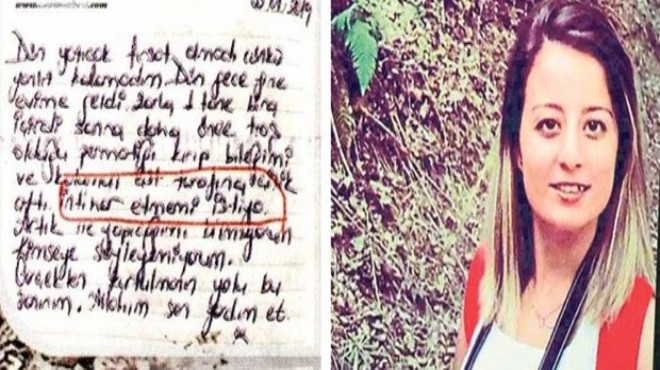 2019
Dün yazacak fırsat olmadı çünkü
yalnız kalamadım. Dün gece yine
evime geldi. Zorla 1 tane bira
içirdi sonra daha önce traş
olduğu permatiği kırıp bileğimi
ve üst tarafına
attı. İntihar etmemi istiyo.
Artık ne yapacağımı bilmiyorum
kimseye söyleyemiyorum.
kurtulmanın yolu bu
sanırım. Allahım sen yardım et.